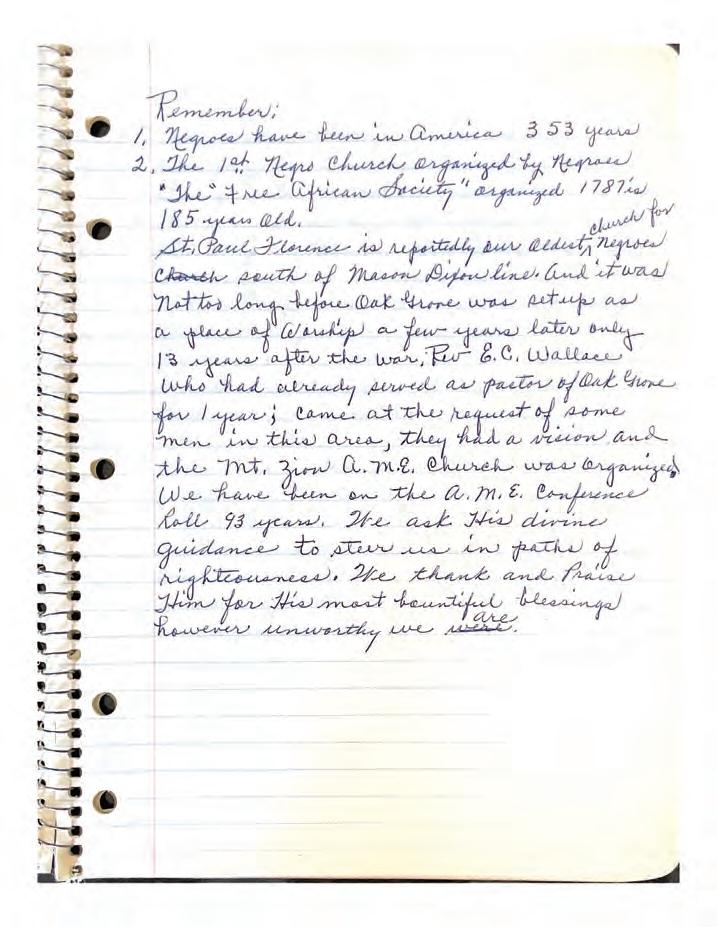 Remember;
1. Negroes have been in America 353 years
2. The 1st. Negro Church organized by Negroes
"The" Free African Society" organized 1787 is
185 years old.
church for
St. Paul Florence is reportedly our oldest ^ Negroes
Church south of Mason Dixon line. And it was
Not too long before Oak Grove was set up as
a place of Worship a few years later only
13 years after the war, Rev E.C. Wallace
who had already served as pastor of Oak Grove
for 1 year; came at the request of some
men in this area, they had a vision and
the Mt. Zion A.M.E. Church was organized
We have been on the A.M.E. Conference
Roll 93 years. We ask His divine
guidance to steer us in paths of
righteousness. We thank and Praise
Him for His most bountiful blessings
are
however unworthy we were.